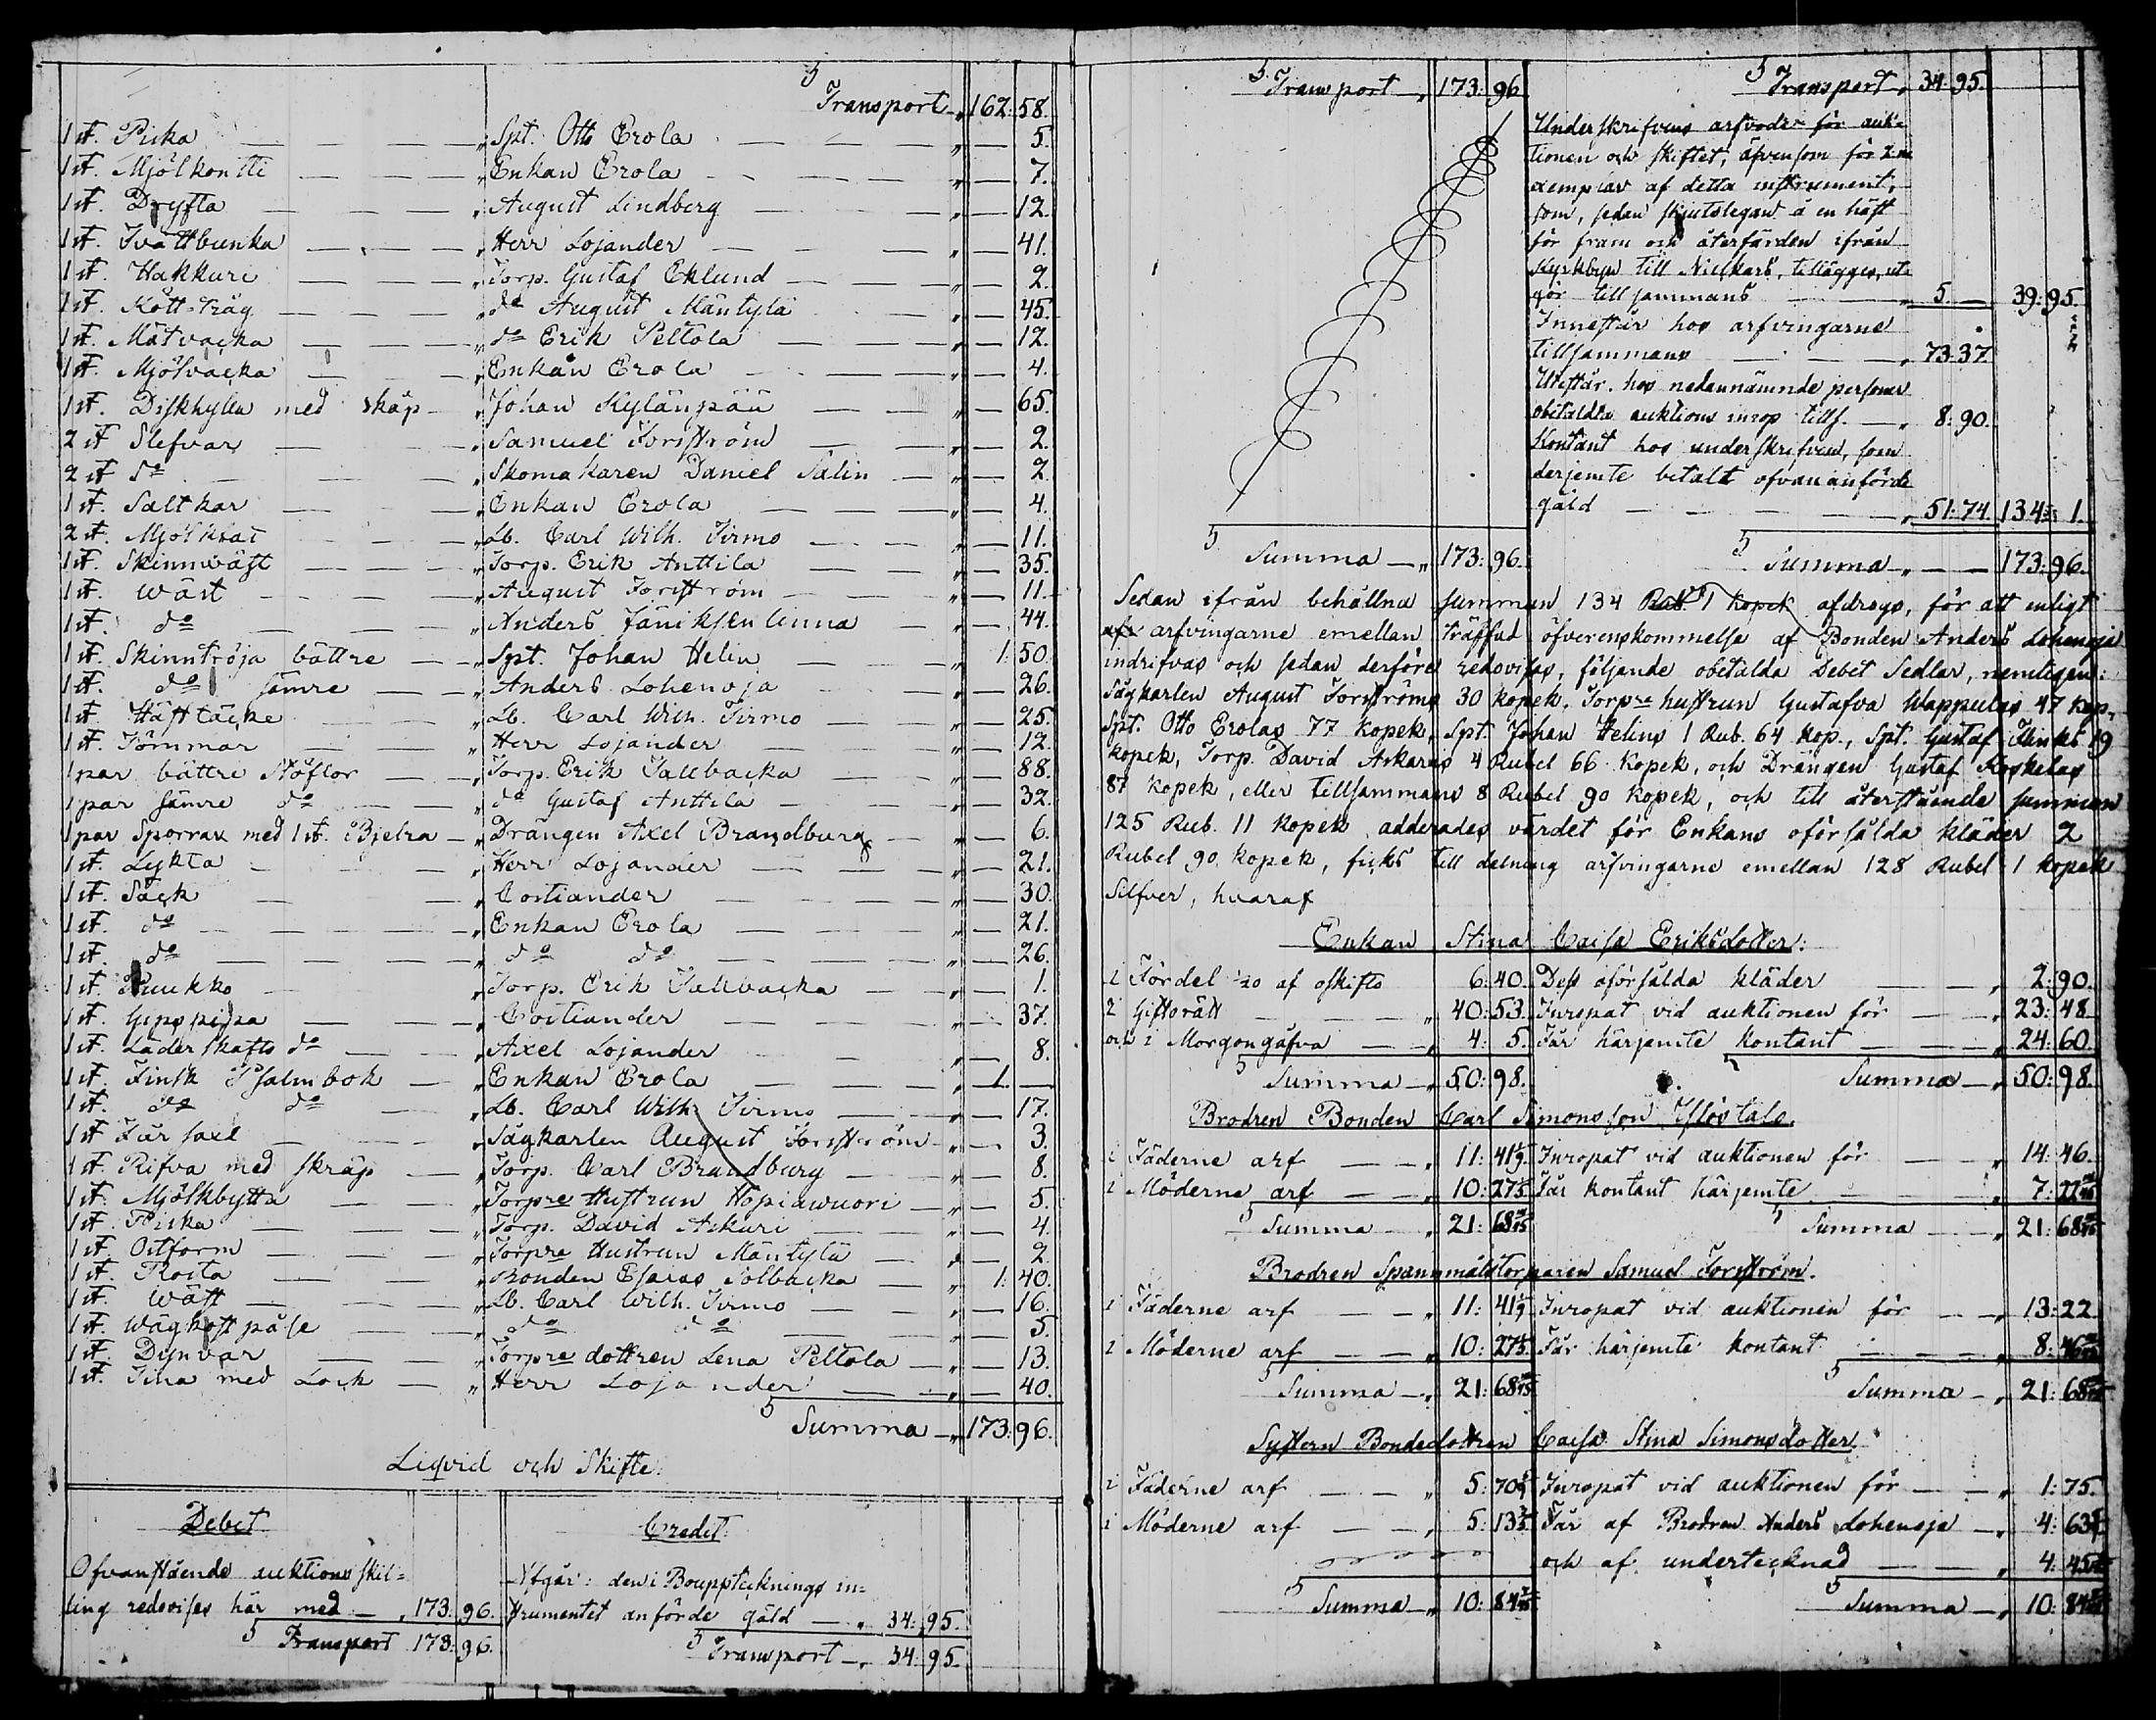 Transport — „ 162: 58.
1 st. Piska — — — „ Spt. Otto Erola — — — „ — 5.
1 st. Mjölkontti — — — „ Enkan Erola — — — „ — 7.
1 st. Dryfta — — — „ August Lindberg — — — „ — 12.
1 st. Tvättbunka — — — „ Herr Lojander — — — „ — 41.
1 st. Hakkuri — — — „ Torp. Gustaf Eklund — — — „ — 2.
1 st. Kött-tråg — — — „ do August Mäntylä — — „ — 45.
1 st. Mätvacka — — — „ do Erik Peltola — — — „ — 12.
1 st. Mjölvacka — — — „ Enkan Erola — — — „ — 4.
1 st. Diskhylla med skåp — „ Johan Kylänpää — — — „ — 65.
2 st Slefvar — — — „ Samuel Forsström — — — „ — 2.
2 st do — — — „ Skomakaren Daniel Salin — „ — 2.
1 st. Saltkar — — — „ Enkan Erola — — — „ — 4.
2 st. Mjölkfat — — — „ Lb. Carl Wilh. Tirmo — — — „ — 11.
1 st. Skinnwäst — — — „ Torp. Erik Anttila — — — „ — 35.
1 st. Wäst — — — „ August Forsström — — — „ — 11.
1 st. do — — — „ Anders Jäniksenlinna — — „ — 44.
1 st. Skinntröja bättre — — „ Spt. Johan Helin — — — „ 1: 50.
1 st. do sämre — — „ Anders Lohenoja — — — „ — 26.
1 st. Hästtäcke — — — „ Lb. Carl Wilh. Tirmo — — — „ — 25.
1 st. Tömmar — — — „ Herr Lojander — — — „ — 12.
1 par bättre Stöflor — — „ Torp. Erik Tallbacka — — — „ — 88.
1 par sämre do — — „ do Gustaf Anttila — — — „ — 32.
1 par Sporrar med 1 st. Bjelra — „ Drängen Axel Brandburg — „ — 6.
1 st. Lykta — — — „ Herr Lojander — — — „ — 21.
1 st. Säck — — — „ Costiander — — — „ — 30.
1 st. do — — — „ Enkan Erola — — — „ — 21.
1 st. do — — — „ do do — — — „ — 26.
1 st. Puukko — — — „ Torp. Erik Tallbacka — — „ — 1.
1 st. Gipspipa — — — „ Costiander — — — „ — 37.
1 st. Läderskafts do — — „ Axel Lojander — — — „ — 8.
1 st. Finsk Psalmbok — — „ Enkan Erola — — — „ 1. —
1 st. do do — „ Lb. Carl Wilh. Tirmo — — „ — 17.
1 st Fårsaxl — — — „ Sågkarlen August Forsström — „ — 3.
1 st. Rifva med skräp — — „ Torp. Carl Brandburg — — „ — 8.
1 st. Mjölkbytta — — — „ Torpre Hustrun Hopiawuori — „ — 5.
1 st. Piska — — — „ Torp. David Askari — — — „ — 4.
1 st. Ostform — — — „ Torpre Hustrun Mäntylä — „ — 2.
1 st. Rosta — — — „ Bonden Esaias Solbacka — — „ 1: 40.
1 st. Wått — — — „ Lb. Carl Wilh. Tirmo — — — „ — 16.
1 st. Wägkostpåse — — „ do do — — — „ — 5.
1 st. Dynvar — — — „ Torpre dottren Lena Peltola — „ — 13.
1 st. Tina med Lock — — „ Herr Lojander — — — „ — 40.
Summa — „ 173: 96.
Liqvid och Skifte.
Debet
Ofvanstående auktions skil-
ling redovises här med — „ 173: 96.
Transport 173: 96.
Credit
Afgår: den i Bouppteckningsin-
strumentet anförde gäld — „ 34: 95.
Transport — „ 34: 95.
Transport — „ 173: 96.
Transport „ 34: 95.
Underskrifvens arfvode för auk-
tionen och skiftet, äfvensom för 2 ne
exemplar af detta instrument,
som, sedan skjutslegan å en häst
för fram och återfärden ifrån
Kyrkbyn till Niukars, tillägges, ut-
gör tillsammans — — „ 5. — 39: 95.
Innestår hos arfvingarne
tillsammans — — „ 73: 37
Utestår hos nedannämnde personer
obetaldta auktions inrop tills. — „ 8: 90.
Kontant hos underskrifven, som
derjemte betalt ofvananförde
gäld — — — „ 51: 74. 134: 1.
Summa — „ 173: 96.
Summa — „ — 173: 96.
Sedan ifrån behållna summan 134 Rub. 1 kopek afdrogs, för att enligt
arfvingarne emellan träffad öfverenskommelse af Bonden Anders Lohenoja
indrifvas och sedan derföre redovises, följande obetalda Debet Sedlar, nemligen:
Sågkarlen August Forsströms 30 kopek, Torpre hustrun Gustafva Wappulas 47 kop.,
Spt. Otto Erolas 77 kopek, Spt. Johan Helins 1 Rub. 64 kop., Spt. Gustaf Flinks 19
kopek, Torp. David Askaris 4 Rubel 66 kopek, och Drängen Gustaf Koskelas
87 kopek, eller tillsammans 8 Rubel 90 kopek, och till återstående summan
125 Rub. 11 kopek adderades värdet för Enkans oförsålda kläder 2
Rubel 90 kopek, ficks till delning arfvingarne emellan 128 Rubel 1 kopek
Silfver, hvaraf
Enkan Stina Caisa Eriksdotter:
i Fördel 1/20 af oskifto 6: 40. Dess oförsålda kläder — — „ 2: 90.
i Giftorätt — — „ 40: 53. Inropat vid auktionen för — — „ 23: 48.
och i Morgongåfva — — „ 4: 5. Får härjemte kontant — — „ 24: 60.
Summa — „ 50: 98. Summa — „ 50: 98.
Brodren Bonden Carl Simonsson Isöstalo.
i Fäderne arf — — „ 11: 41 1/9. Inropat vid auktionen för — — „ 14: 46.
i Möderne arf — — „ 10: 27 1/5. Får kontant härjemte — — „ 7: 22
Summa — „ 21: 68 Summa — „ 21: 68
Brodren Spannmålstorparen Samuel Forsström.
i Fäderne arf — — „ 11: 41 1/9. Inropat vid auktionen för — — „ 13: 22.
i Möderne arf — — „ 10: 27 1/5. Får härjemte kontant — — „ 8: 46
Summa — „ 21: 68 Summa — „ 21: 68
Systern Bondedottren Caisa Stina Simonsdotter.
i Fäderne arf — — „ 5: 70 Inropat vid auktionen för — — „ 1: 75.
i Möderne arf — — „ 5: 13 Får af Brodren Anders Lohenoja — „ 4: 63
och af undertecknad — — „ 4: 45
Summa — „ 10: 84 Summa — „ 10: 84